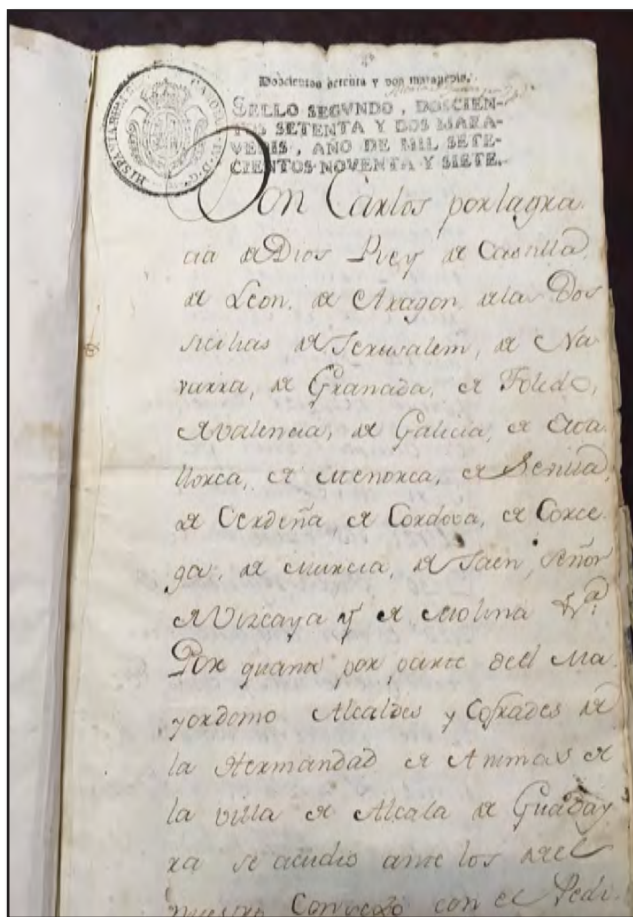 Doscientos setenta y dos maravedis.
SELLO SEGVNDO, DOSCIEN-
TOS SETENTA Y DOS MARA-
VEDIS, AÑO DE MIL SETE-
CIENTOS NOVENTA Y SIETE.
HISPANIAR
Don Carlos por la gra
cia de Dios Rey de Castilla,
de Leon, de Aragon, de las Dos
sicilias de Jerusalem, de Na
varra, de Granada, de Toledo,
de Valencia, de Galicia, de Ma
llorca, de Menorca, de Sevilla,
de Cerdeña, de Cordova, de Corce
ga, de Murcia, de Jaen, señor
de Vizcaya y de Molina &a.
Por quanto por parte del Ma
yordomo Alcaldes y Cofrades de
la Hermandad de Animas de
la villa de Alcala de Guaday
ra se acudio ante los del
nuestro Consejo con el Pedi